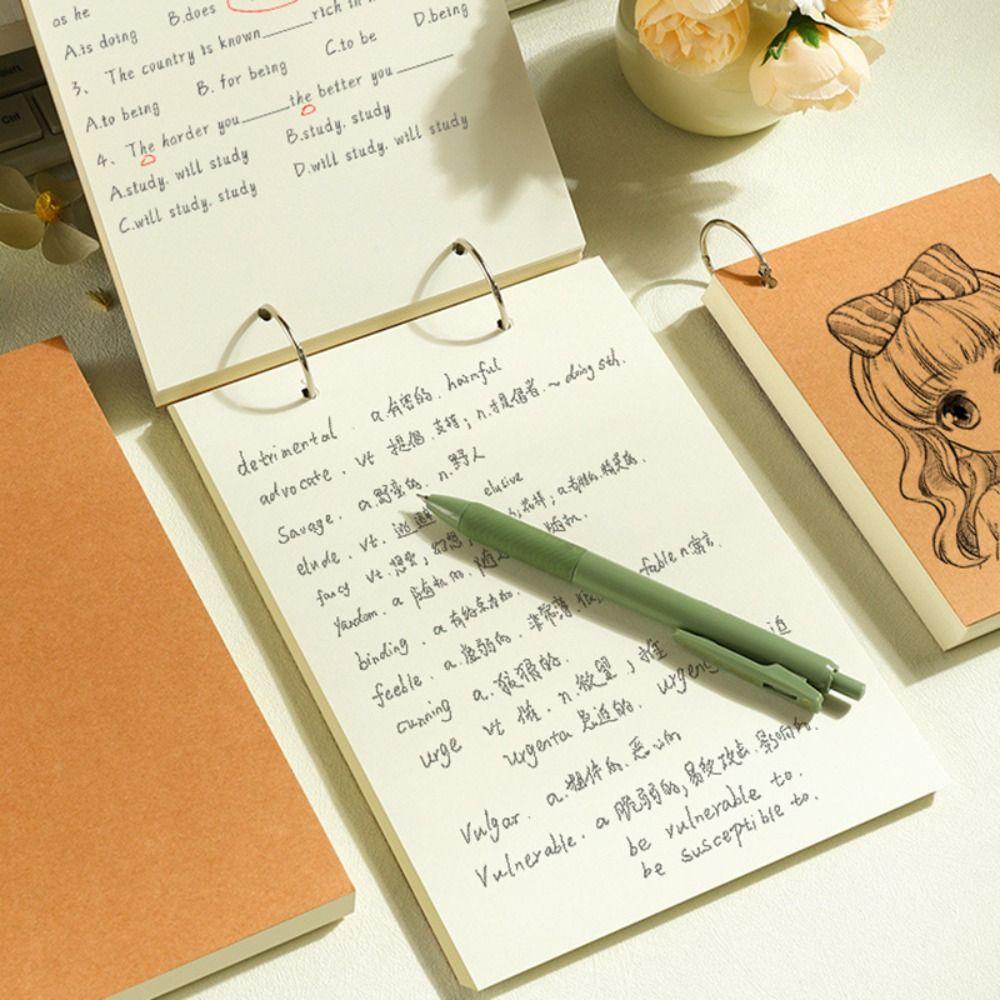 as he
B.does
A.is doing
D.being
3、 The country is known______rich in
A.to being B. for being C.to be
4、 The harder you______the better you______
A.study. will study B.study. study
C.will study. study D.will study. will study
detrimental. a.有害的. harmful
advocate. vt 提倡.支持; n.提倡者. ~ doing sth.
Savage. a.野蛮的. n.野人
elude. vt. elusive
fancy vt.想要; 幻想
random. a 随机的. 随机.
binding. a 有约束力的.
feeble. a.虚弱的. fable n.寓言
cunning a.狡猾的.
urge vt 催. n.欲望; 推
urgenta 急迫的. urgen 迫
Vulgar. a.粗俗的.恶
Vulnerable. a 脆弱的,易受攻击.影响的.
be vulnerable to.
be susceptible to.
Ctrl